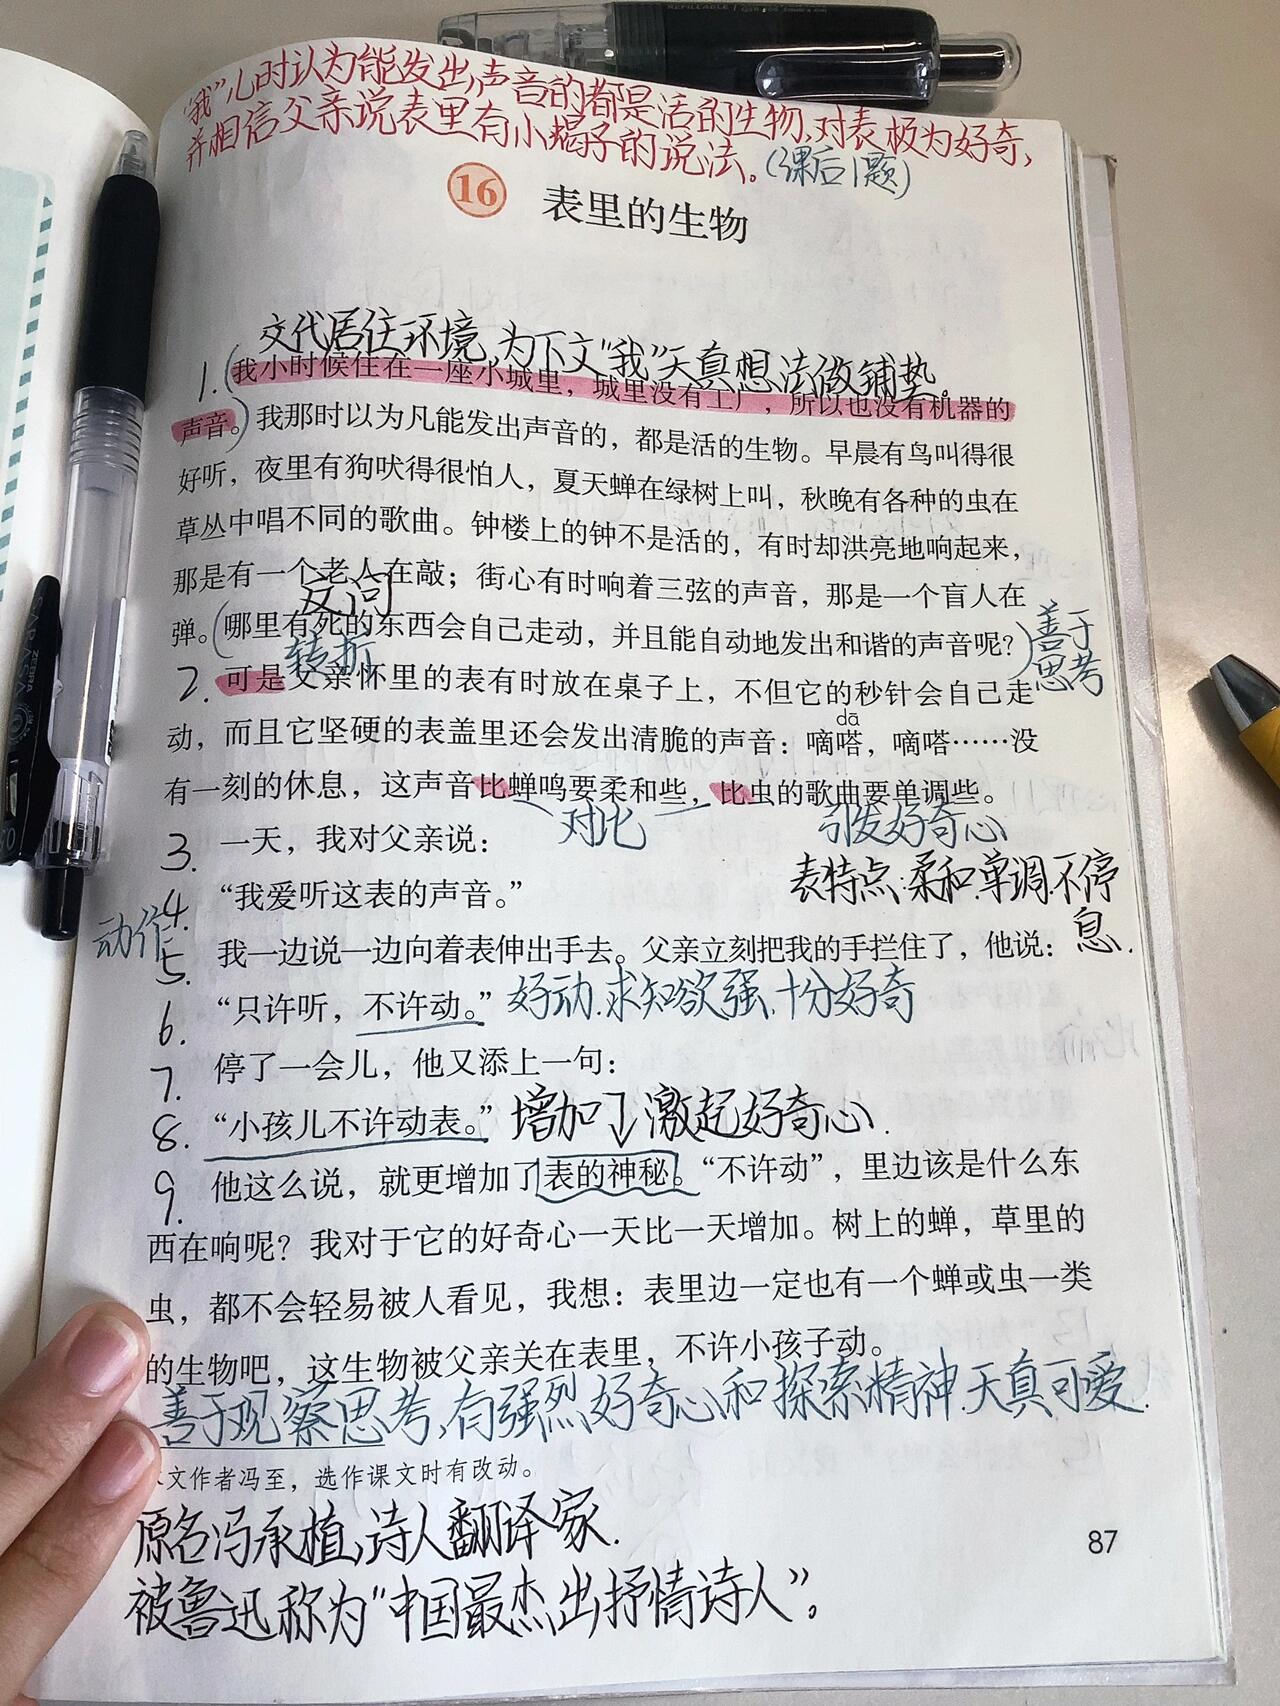 “我”儿时认为能发出声音的都是活的生物,对表极为好奇,
并相信父亲说表里有小蝎子的说法。(课后1题)
16 表里的生物
交代居住环境,为下文“我”天真想法做铺垫。
1.(我小时候住在一座小城里，城里没有工厂，所以也没有机器的
声音。)我那时以为凡能发出声音的，都是活的生物。早晨有鸟叫得很
好听，夜里有狗吠得很怕人，夏天蝉在绿树上叫，秋晚有各种的虫在
草丛中唱不同的歌曲。钟楼上的钟不是活的，有时却洪亮地响起来，
那是有一个老人在敲；街心有时响着三弦的声音，那是一个盲人在
反问
弹。(哪里有死的东西会自己走动，并且能自动地发出和谐的声音呢？)
善于
思考
转折
2.可是父亲怀里的表有时放在桌子上，不但它的秒针会自己走
dā
动，而且它坚硬的表盖里还会发出清脆的声音：嘀嗒，嘀嗒……没
有一刻的休息，这声音比蝉鸣要柔和些，比虫的歌曲要单调些。
对比 引发好奇心
3.一天，我对父亲说：
表特点:柔和.单调.不停
息.
4.“我爱听这表的声音。”
动作
5.我一边说一边向着表伸出手去。父亲立刻把我的手拦住了，他说：
6.“只许听，不许动。” 好动.求知欲强.十分好奇
7.停了一会儿，他又添上一句：
8.“小孩儿不许动表。” 增加了,激起好奇心.
9.他这么说，就更增加了表的神秘。“不许动”，里边该是什么东
西在响呢？我对于它的好奇心一天比一天增加。树上的蝉，草里的
虫，都不会轻易被人看见，我想：表里边一定也有一个蝉或虫一类
的生物吧，这生物被父亲关在表里，不许小孩子动。
善于观察思考,有强烈好奇心和探索精神.天真可爱.
文作者冯至，选作课文时有改动。
原名冯承植,诗人翻译家.
被鲁迅称为“中国最杰出抒情诗人”。
87
ZEBRA
SARASA